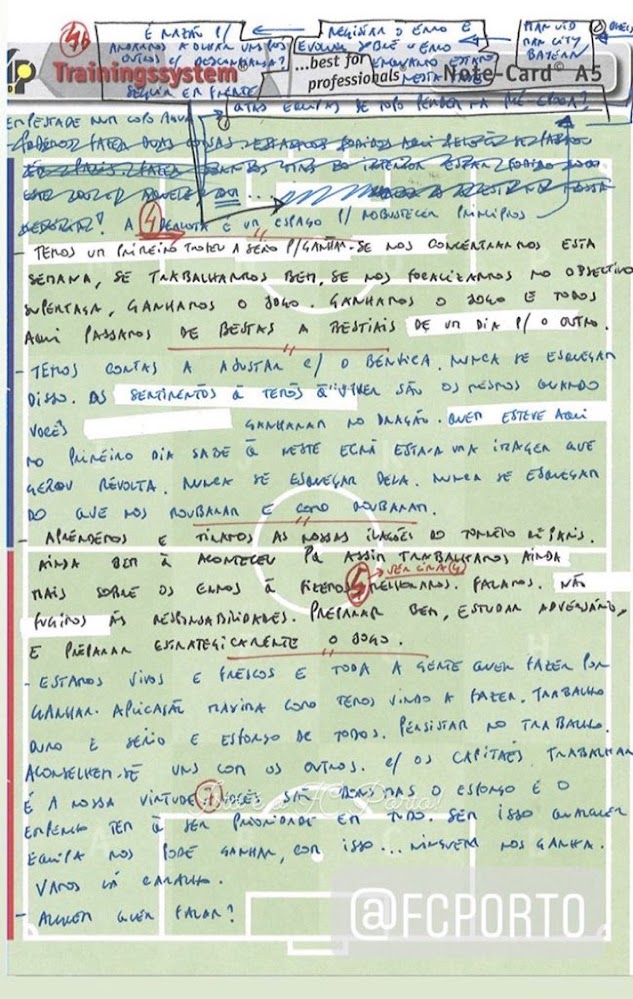 4b
É RAZÃO P/ ANDARMOS A OLHAR UNS P/ OS OUTROS C/ DESCONFIANÇA?
SEGUIR EM FRENTE
REGISTAR O ERRO E
EVOLUIR SOBRE O ERRO
ENQUANTO ESTAMOS
NESTA FASE
MAN UTD
MAN CITY
BAYERN
Trainingssystem®
...best for
professionals
Note-Card© A5
OUTRAS EQUIPAS DE TOPO PERDER NA PRÉ ÉPOCA?
TEMPESTADE NUM COPO ÁGUA
A 4 DERROTA É UM ESPAÇO P/ ROBUSTECER PRINCÍPIOS
- TEMOS UM PRIMEIRO TROFEU A SÉRIO P/ GANHAR. SE NOS CONCENTRARMOS ESTA
SEMANA, SE TRABALHARMOS BEM, SE NOS FOCALIZARMOS NO OBJECTIVO
SUPERTAÇA, GANHAMOS O JOGO. GANHAMOS O JOGO E TODOS
AQUI PASSAMOS DE BESTAS A BESTIAIS DE UM DIA P/ O OUTRO.
- TEMOS CONTAS A AJUSTAR C/ O BENFICA. NUNCA SE ESQUEÇAM
DISSO. OS SENTIMENTOS Q TEMOS Q VIVER SÃO OS MESMOS QUANDO
VOCÊS GANHARAM NO DRAGÃO. QUEM ESTEVE AQUI
NO PRIMEIRO DIA SABE Q NESTE ECRÃ ESTAVA UMA IMAGEM QUE
GEROU REVOLTA. NUNCA SE ESQUEÇAM DELA. NUNCA SE ESQUEÇAM
DO QUE NOS ROUBARAM E COMO ROUBARAM.
- APRENDEMOS E TIRAMOS AS NOSSAS ILAÇÕES DO TORNEIO DE PARIS.
AINDA BEM Q ACONTECEU PQ ASSIM TRABALHAMOS AINDA
MAIS SOBRE OS ERROS Q FIZEMOS. 5 MELHORAMOS. FALAMOS. NÃO
FUGIMOS ÀS RESPONSABILIDADES. PREPARAR BEM, ESTUDAR ADVERSÁRIO,
E PREPARAR ESTRATEGICAMENTE O JOGO.
- ESTAMOS VIVOS E FRESCOS E TODA A GENTE QUER FAZER POR
GANHAR. APLICAÇÃO MÁXIMA COMO TEMOS VINDO A FAZER. TRABALHO
DURO E SÉRIO E ESFORÇO DE TODOS. PERSISTAM NO TRABALHO.
ACONSELHEM-SE UNS COM OS OUTROS. C/ OS CAPITÃES. TRABALHAR
É A NOSSA VIRTUDE. 7 VOCÊS SÃO BONS MAS O ESFORÇO E O
EMPENHO TEM Q SER PRIORIDADE EM TUDO. SEM ISSO QUALQUER
EQUIPA NOS PODE GANHAR, COM ISSO... NINGUEM NOS GANHA.
VAMOS LÁ CARALHO.
- ALGUEM QUER FALAR?
@FCPORTO